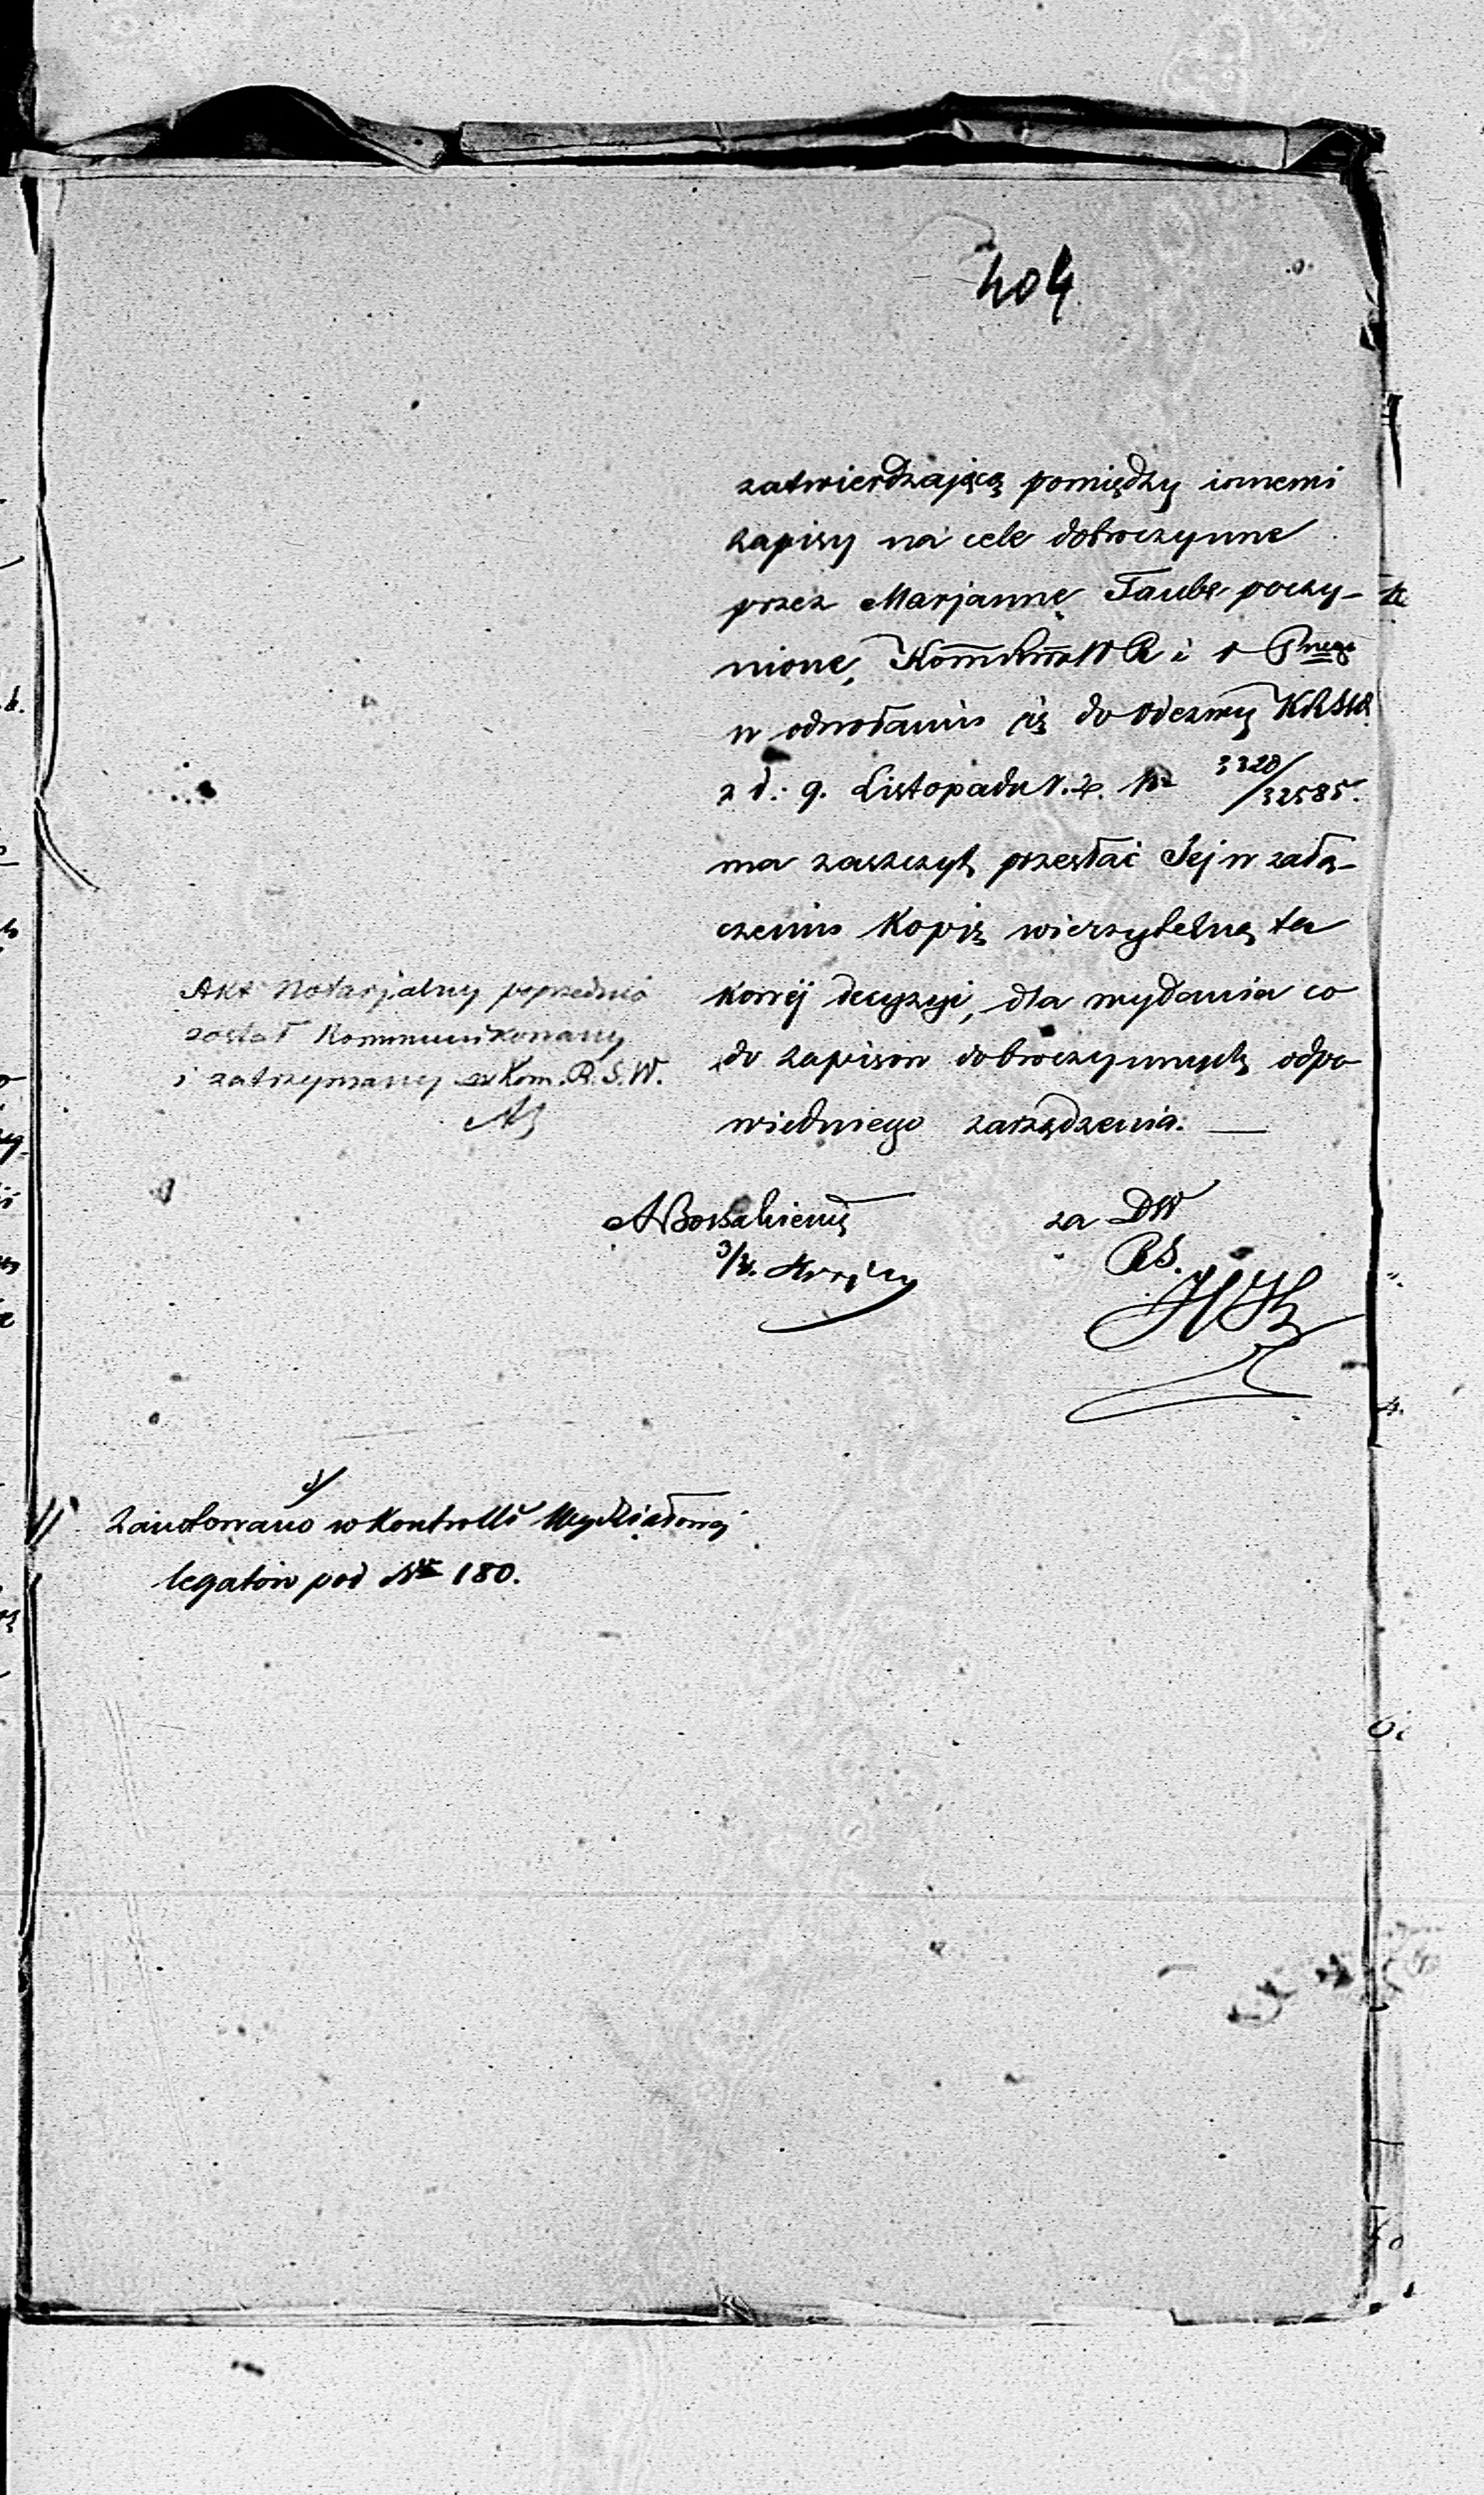 404
zatwierdzającą pomiędzy innemi
zapisy na cele dobroczynne
przez Marjannę Taube poczy-
nione,
w odwołaniu się do Odezwy KRSW.
z d: 9. Listopada r. z. Nr 3320/32585.
ma zaszczyt przesłać Jej w załą-
czeniu Kopię wierzytelną ta
kowéj decyzyi, dla wydania co
do zapisow dobroczynnych odpo
wiedniego zarządzenia. —
Akt Notarjalny poprzednio
został Kommunikowany
i zatrzymany w Kom. R. S. W.
za DW
RS.
Zanotowano w Kontrolli Wydziałowej
legatów pod Nr 180.